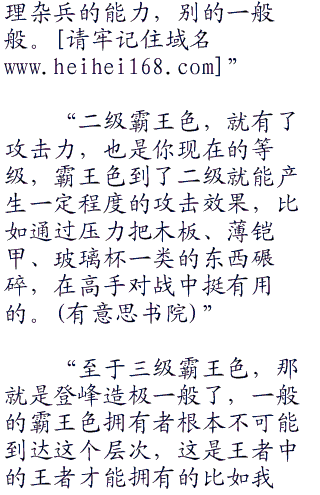 理杂兵的能力，别的一般
般。[请牢记住域名
www.heihei168.com]”
“二级霸王色，就有了
攻击力，也是你现在的等
级，霸王色到了二级就能产
生一定程度的攻击效果，比
如通过压力把木板、薄铠
甲、玻璃杯一类的东西碾
碎，在高手对战中挺有用
的。(有意思书院)”
“至于三级霸王色，那
就是登峰造极一般了，一般
的霸王色拥有者根本不可能
到达这个层次，这是王者中
的王者才能拥有的比如我